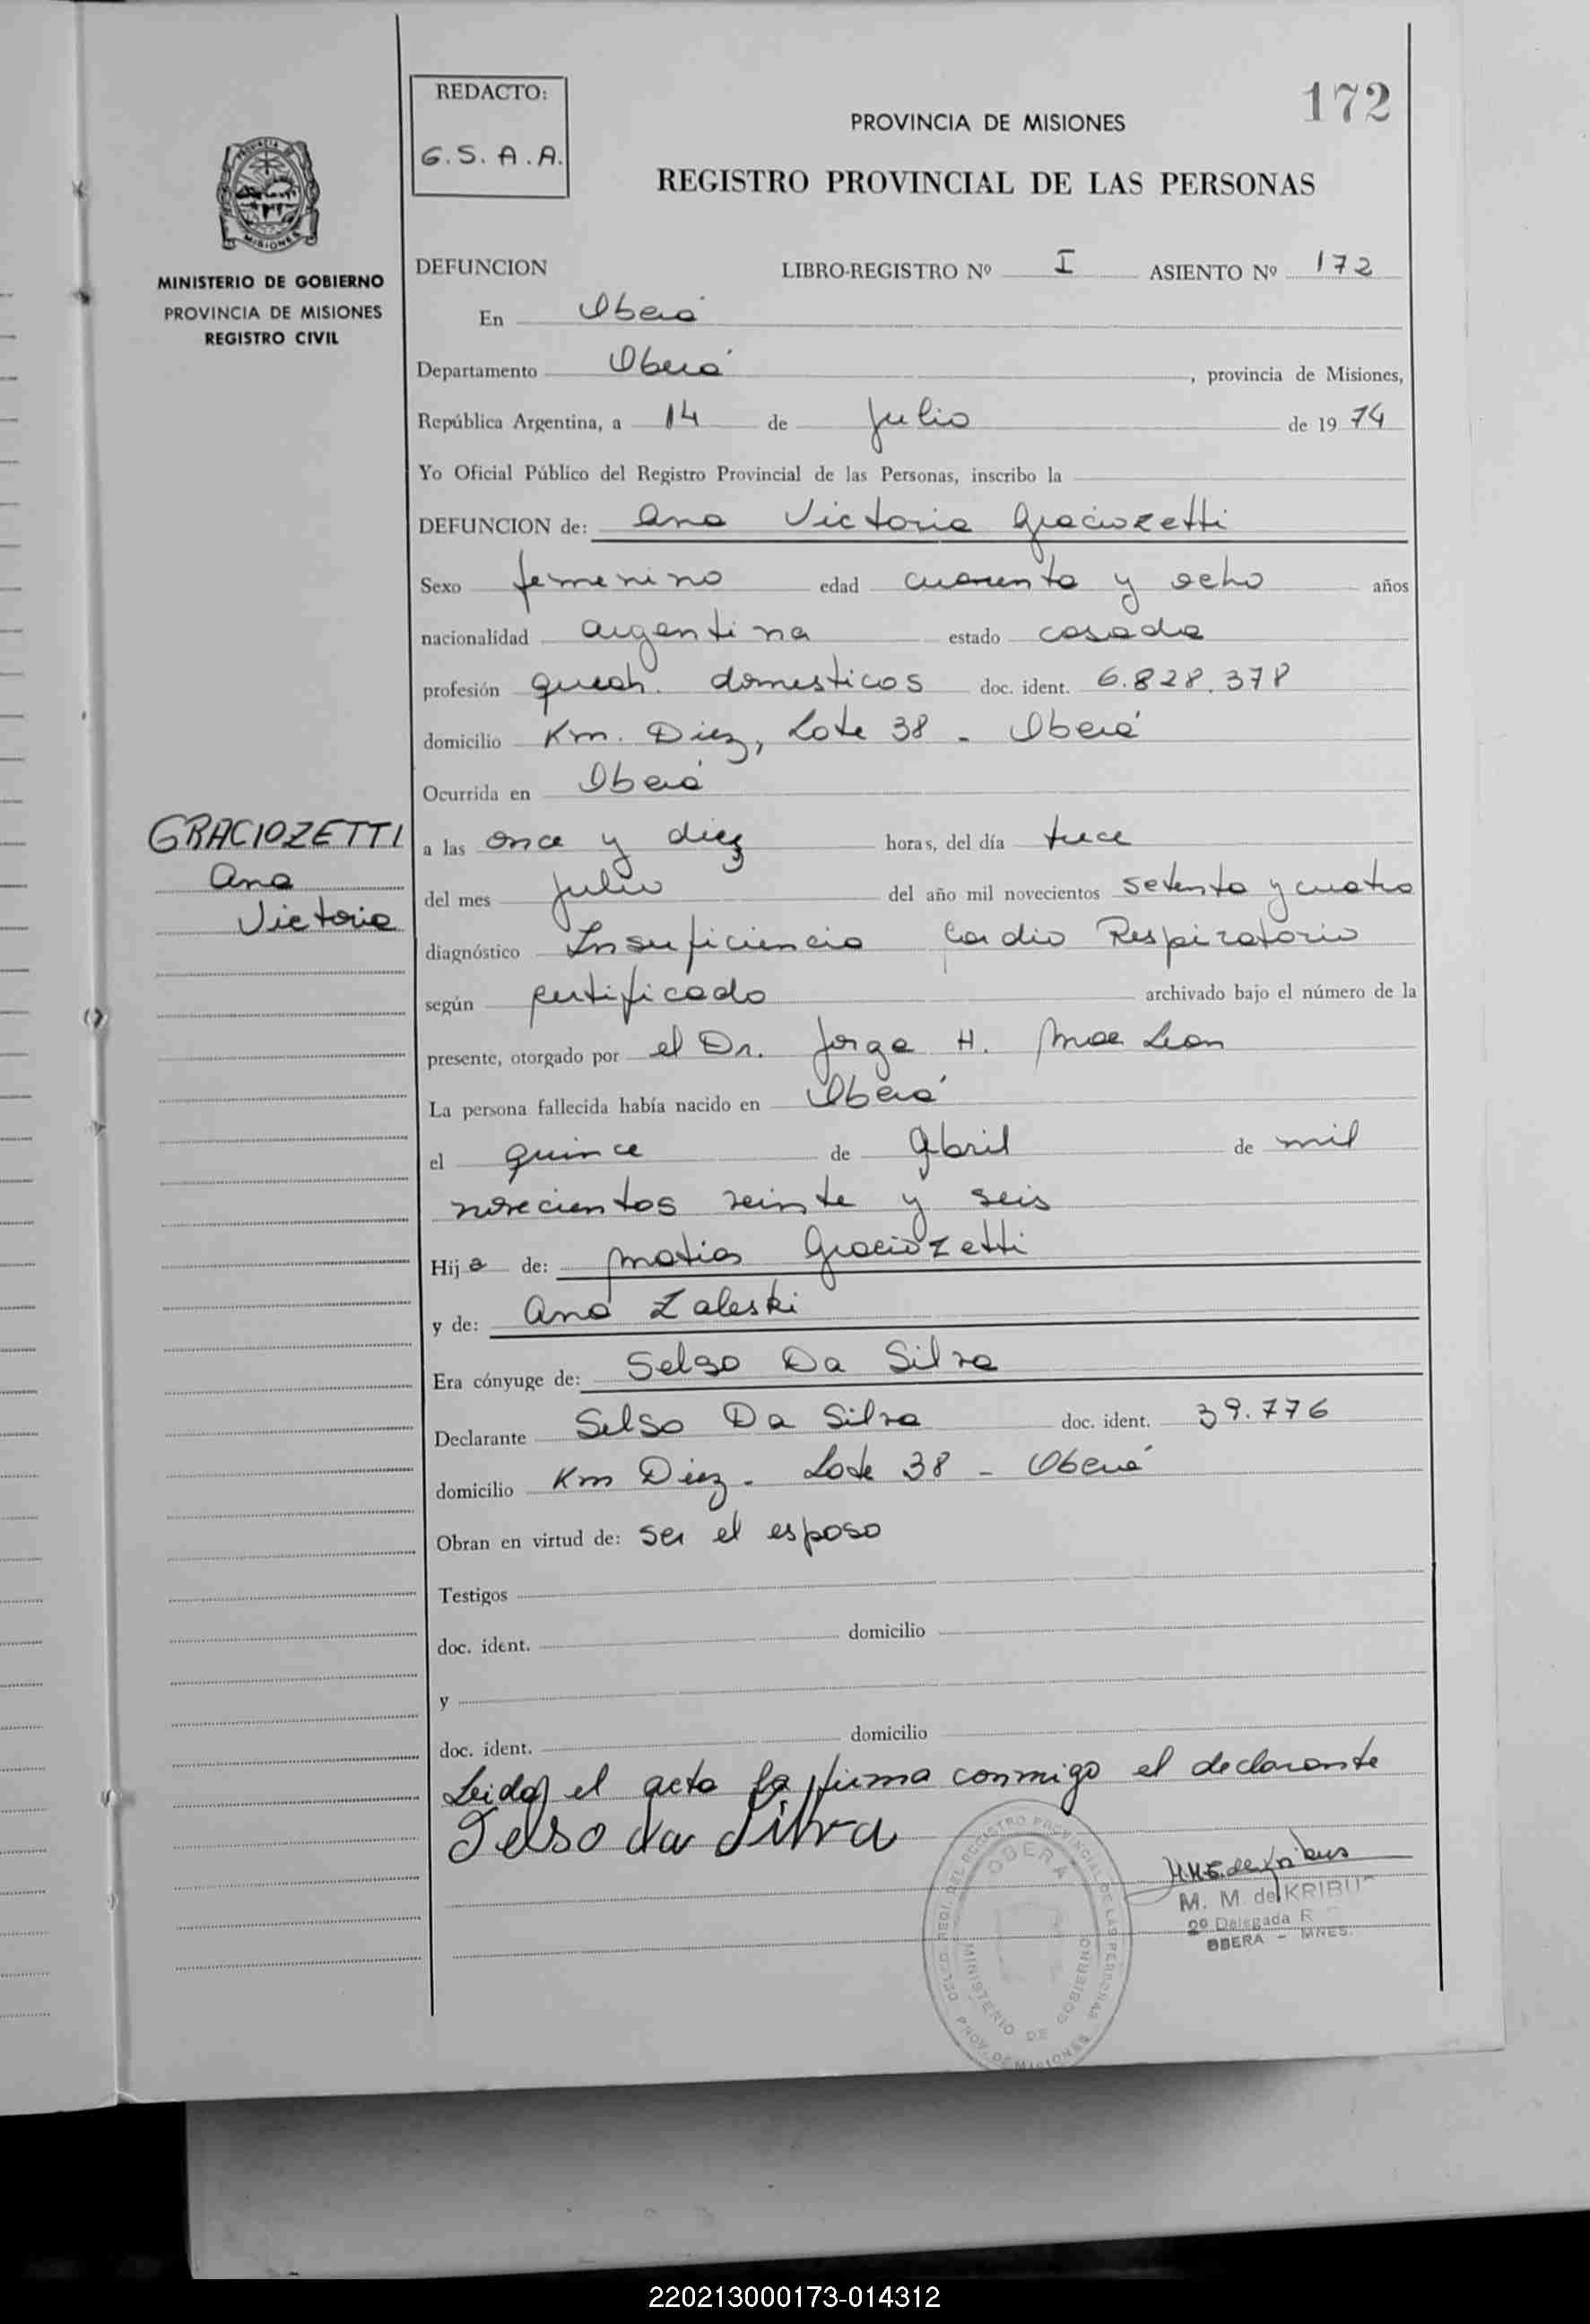 172
REDACTO:
G.S.A.A.
PROVINCIA DE MISIONES
REGISTRO PROVINCIAL DE LAS PERSONAS
MISIONES
MINISTERIO DE GOBIERNO
PROVINCIA DE MISIONES
REGISTRO CIVIL
DEFUNCION LIBRO-REGISTRO Nº I ASIENTO Nº 172
En Oberá
Departamento Oberá, provincia de Misiones,
República Argentina, a 14 de Julio de 1974
Yo Oficial Público del Registro Provincial de las Personas, inscribo la
DEFUNCION de: Ana Victoria Graciozetti
Sexo femenino edad cuarenta y ocho años
nacionalidad argentina estado casada
profesión queah. domesticos doc. ident. 6.828.378
domicilio Km. Diez, Lote 38 - Oberá
Ocurrida en Oberá
GRACIOZETTI
Ana
Victoria
a las once y diez horas, del día trece
del mes Julio del año mil novecientos setenta y cuatro
diagnóstico Insuficiencia Cardio Respiratorio
según certificado archivado bajo el número de la
presente, otorgado por el Dr. Jorge H. Mac Lean
La persona fallecida había nacido en Oberá
el quince de Abril de mil
novecientos veinte y seis
Hija de: Matias Graciozetti
y de: Ana Zaleski
Era cónyuge de: Selso Da Silva
Declarante Selso Da Silva doc. ident. 39.776
domicilio Km Diez - Lote 38 - Oberá
Obran en virtud de: ser el esposo
Testigos
doc. ident. domicilio
y
doc. ident. domicilio
Leida el acta la firma conmigo el declarante
Selso da Silva
OBERA
MINISTERIO DE GOBIERNO
M. M. de KRIBU
2º Delegada R
OBERA - MNES.
220213000173-014312